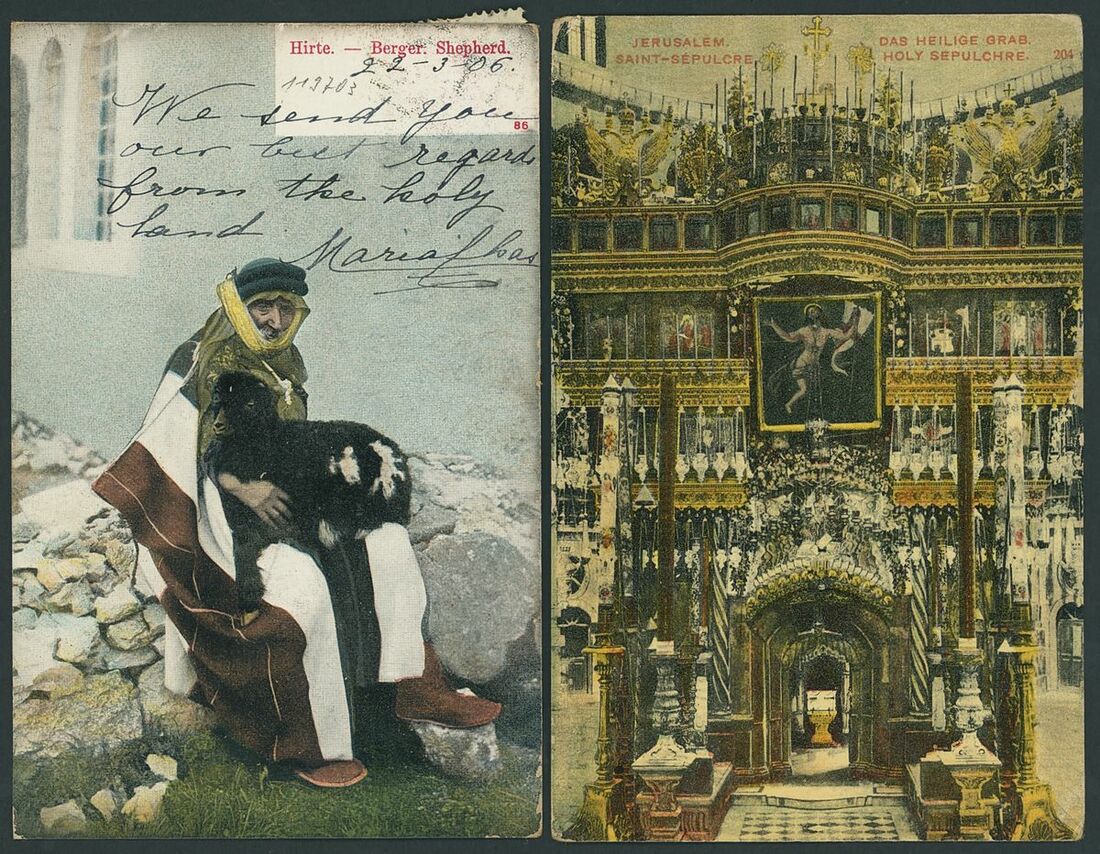 Hirte. — Berger. Shepherd.
22-3-06.
119703
86
We send you
our best regards
from the holy
land
JERUSALEM.
SAINT-SÉPULCRE
DAS HEILIGE GRAB.
HOLY SEPULCHRE. 204